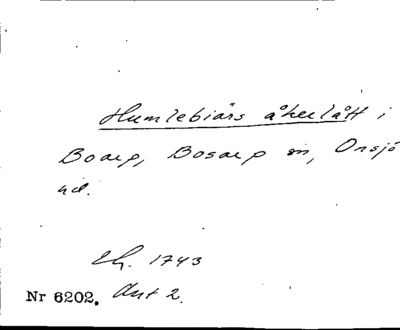 Humlebiärs åkerlått i
Boarp, Bosarp sn, Onsjö
hd.
Lh. 1743
Nr 6202. Akt 2.